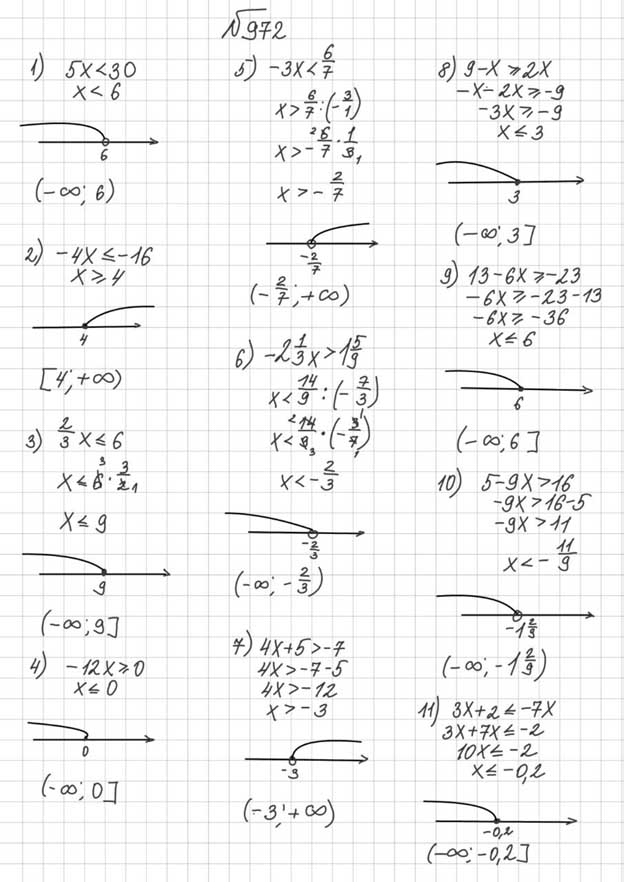 №972
1) 5x<30
x<6
6
(-∞; 6)
2) -4x≤-16
x≥4
4
[4; +∞)
3) 2/3 x≤6
x≤6³·3/2₁
x≤9
9
(-∞; 9]
4) -12x≥0
x≤0
0
(-∞; 0]
5) -3x<6/7
x>6/7:(-3/1)
x>-²6/7·1/3₁
x>-2/7
-2/7
(-2/7; +∞)
6) -2 1/3 x>1 5/9
x<14/9:(-7/3)
x<²14/9₃·(-3¹/7₁)
x<-2/3
-2/3
(-∞; -2/3)
7) 4x+5>-7
4x>-7-5
4x>-12
x>-3
-3
(-3; +∞)
8) 9-x≥2x
-x-2x≥-9
-3x≥-9
x≤3
3
(-∞; 3]
9) 13-6x≥-23
-6x≥-23-13
-6x≥-36
x≤6
6
(-∞; 6]
10) 5-9x>16
-9x>16-5
-9x>11
x<-11/9
-1 2/9
(-∞; -1 2/9)
11) 3x+2≤-7x
3x+7x≤-2
10x≤-2
x≤-0,2
-0,2
(-∞; -0,2]